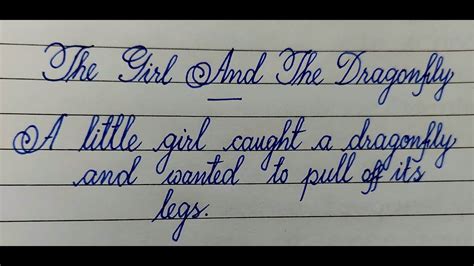 The Girl And The Dragonfly
A little girl caught a dragonfly
and wanted to pull off its
legs.